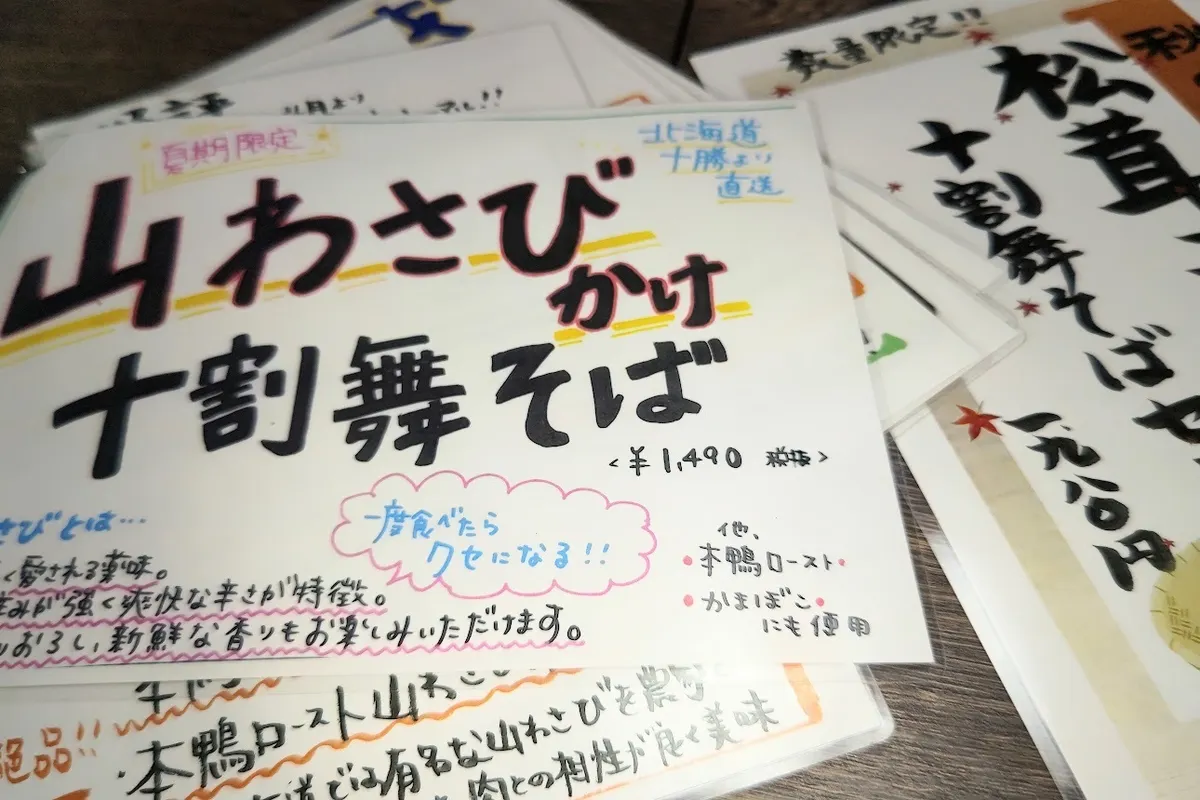 夏期限定
山わさび
かけ
十割舞そば
<¥1,490 税抜>
北海道
十勝より
直送
さびとは…
く愛される薬味。
強く爽快な辛さが特徴。
おろし、新鮮な香りもお楽しみいただけます。
一度食べたら
クセになる!!
他、
・本鴨ロースト・
・かまぼこ・
にも使用
数量限定!!
松茸
十割舞そば
一九八〇円
月より
絶品!!
・本鴨ロースト山わさ
では有名な山わさびを
肉との相性が良く美味